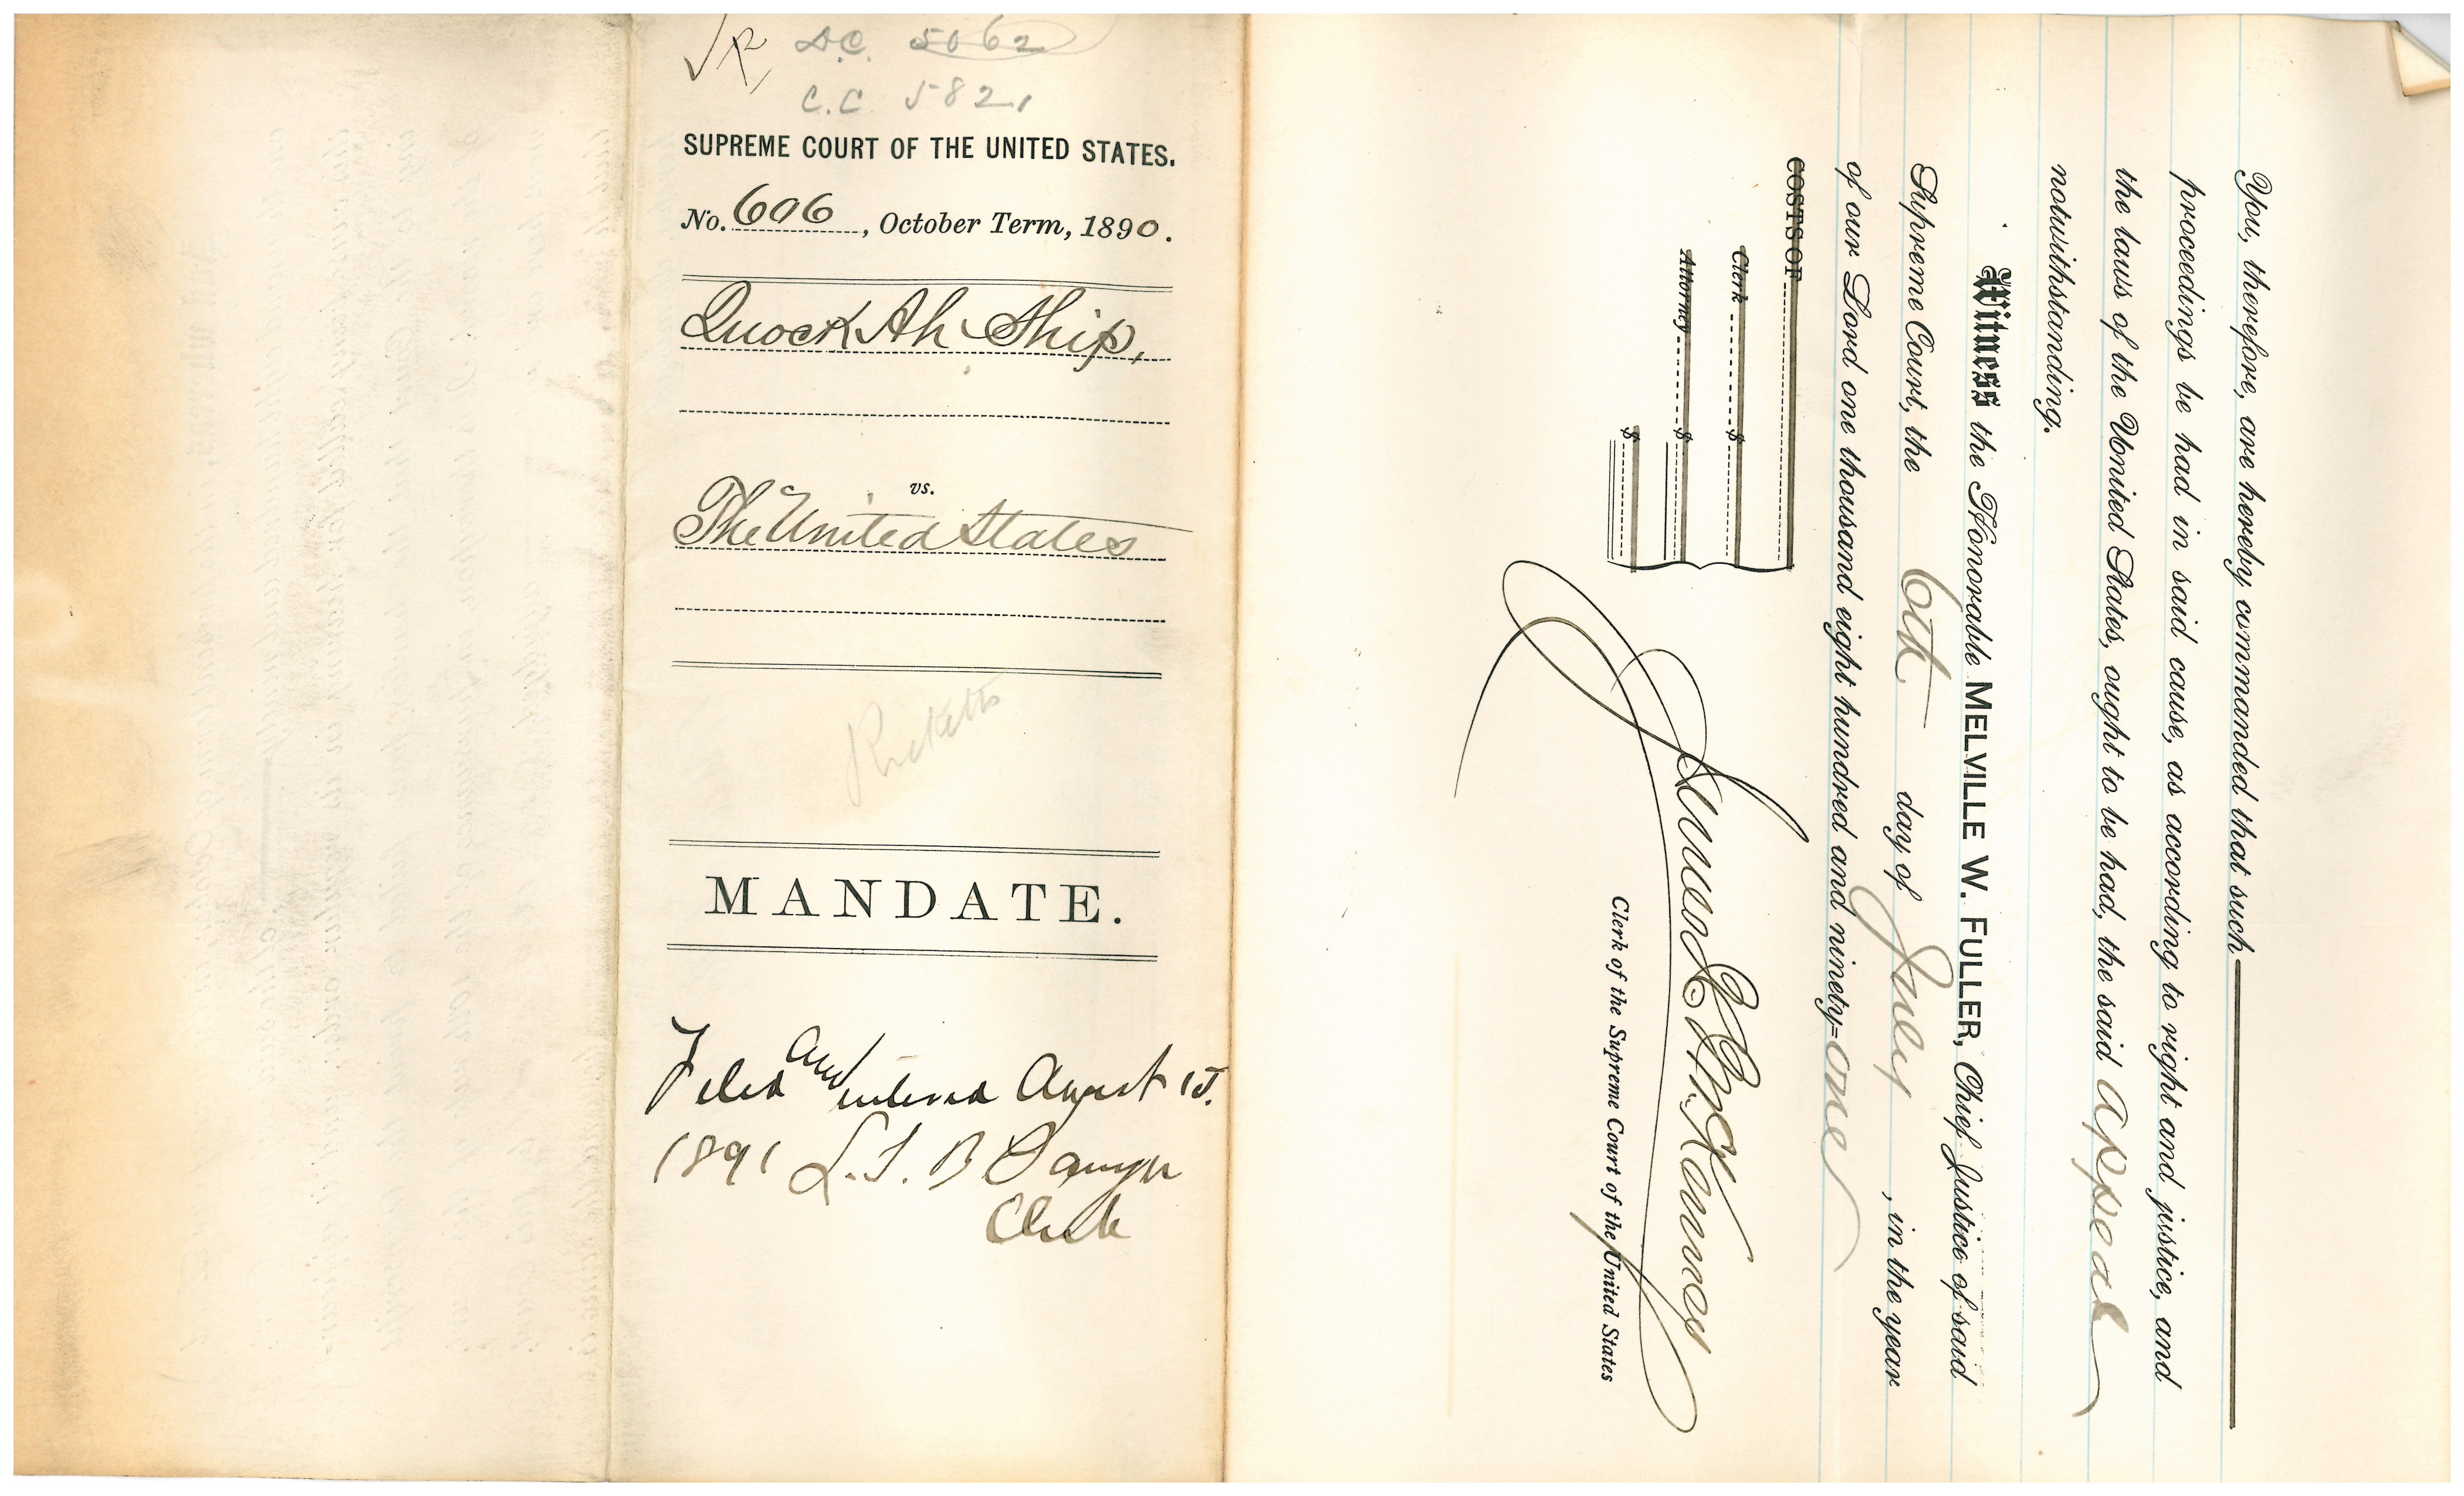 D.C. 5062
C.C. 5821
SUPREME COURT OF THE UNITED STATES.
No. 606, October Term, 1890.
Quock Ah Ship,
vs.
The United States
Ricketts
MANDATE.
Filed and entered August 15.
1891 L.S.B Sawyer
Clerk
You, therefore, are hereby commanded that such
proceedings be had in said cause, as according to right and justice, and
the laws of the United States, ought to be had, the said appeal
notwithstanding.
Witness the Honorable MELVILLE W. FULLER, Chief Justice of said
Supreme Court, the 6th day of July, in the year
of our Lord one thousand eight hundred and ninety-one
COSTS OF
Clerk $
Attorney $
$
James H. McKenney
Clerk of the Supreme Court of the United States